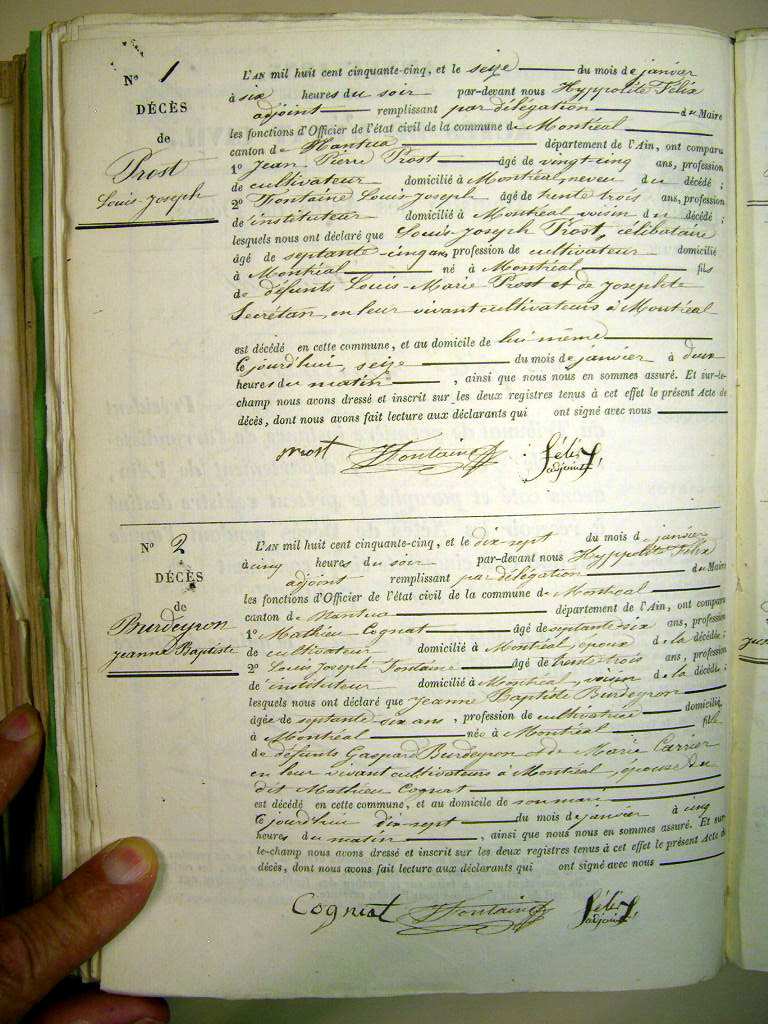 N° 1
DÉCÈS
de
Prost
Louis-Joseph
L'AN mil huit cent cinquante-cinq, et le seize du mois de janvier
à six heures du soir par-devant nous Hyppolite Félix
adjoint remplissant par délégation du Maire
les fonctions d'Officier de l'état civil de la commune de Montréal
canton de Nantua département de l'Ain, ont comparu
1° Jean Pierre Prost âgé de vingt cinq ans, profession
de cultivateur domicilié à Montréal, neveu du décédé ;
2° Fontaine Louis Joseph âgé de trente trois ans, profession
de instituteur domicilié à Montréal, voisin du décédé ;
lesquels nous ont déclaré que Louis-Joseph Prost, célibataire
âgé de septante-cinq ans, profession de cultivateur domicilié
à Montréal né à Montréal fils
de défunts Louis-Marie Prost et de Josephte
Secrétan, en leur vivant cultivateurs à Montréal
est décédé en cette commune, et au domicile de lui même
Cejourd'hui, seize du mois de janvier à deux
heures du matin, ainsi que nous nous en sommes assuré. Et sur-le-
champ nous avons dressé et inscrit sur les deux registres tenus à cet effet le présent Acte de
décès, dont nous avons fait lecture aux déclarants qui ont signé avec nous
Prost Fontaine Félix
adjoint
N° 2
DÉCÈS
de
Burdeyron
Jeanne Baptiste
L'AN mil huit cent cinquante-cinq, et le dix sept du mois de janvier
à cinq heures du soir par-devant nous Hyppolite Félix
adjoint remplissant par délégation du Maire
les fonctions d'Officier de l'état civil de la commune de Montréal
canton de Nantua département de l'Ain, ont comparu
1° Mathieu Cognat âgé de septante six ans, profession
de cultivateur domicilié à Montréal, époux de la décédée ;
2° Louis Joseph Fontaine âgé de trente trois ans, profession
de instituteur domicilié à Montréal, voisin de la décédée ;
lesquels nous ont déclaré que Jeanne Baptiste Burdeyron
âgée de septante six ans, profession de cultivatrice domicilié
à Montréal née à Montréal fille
de défunts Gaspard Burdeyron et de Marie Carrier
en leur vivant cultivateurs à Montréal, épouse du
dit Mathieu Cognat
est décédé en cette commune, et au domicile de son mari
Cejourd'hui dix-sept du mois de janvier à cinq
heures du matin, ainsi que nous nous en sommes assuré. Et sur-
le-champ nous avons dressé et inscrit sur les deux registres tenus à cet effet le présent Acte de
décès, dont nous avons fait lecture aux déclarants qui ont signé avec nous
Cognat Fontaine Félix
adjoint